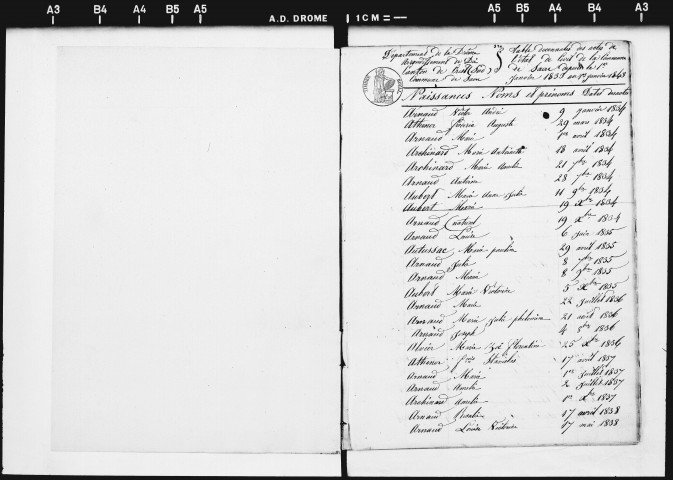 A3 B4 A4 B5 A5 A.D. DROME 1 CM A5 B5 A4 B4 A3
Département de la Drôme
Arrondissement de Die
Canton de Crest
Commune de
Table décennale des actes de
l'état de la Commune
de depuis le 1er
janvier 1833 au 1er janvier 1843
Naissances Noms et prénoms
Arnaud 9 janvier 1834
Athenor Auguste 29 mars 1834
Arnaud Marie 1er avril 1834
Archinard Marie Antoinette 18 avril 1834
Archinard Marie Amélie 21 7bre 1834
Arnaud Antoine 28 7bre 1834
Aubert Marie Anne Julie 11 9bre 1834
Aubert Marie 19 Xbre 1834
Arnaud 19 Xbre 1834
Arnaud Louise 6 juin 1835
Marie 29 avril 1835
Arnaud Julie 8 7bre 1835
Arnaud Marie 8 1835
Aubert Marie Victorine 5 Xbre 1835
Arnaud Marie 22 juillet 1836
Arnaud Marie Julie philomène 21 août 1836
Arnaud Joseph 4 8bre 1836
Marie Zoé Florentin 25 Xbre 1836
Athenor Stanislas 17 avril 1837
Arnaud Marie 1er juillet 1837
Arnaud Amélie 2 juillet 1837
Archinard Amélie 1er Xbre 1837
Arnaud Rosalie 17 avril 1838
Arnaud Louise Victorine 17 mai 1838